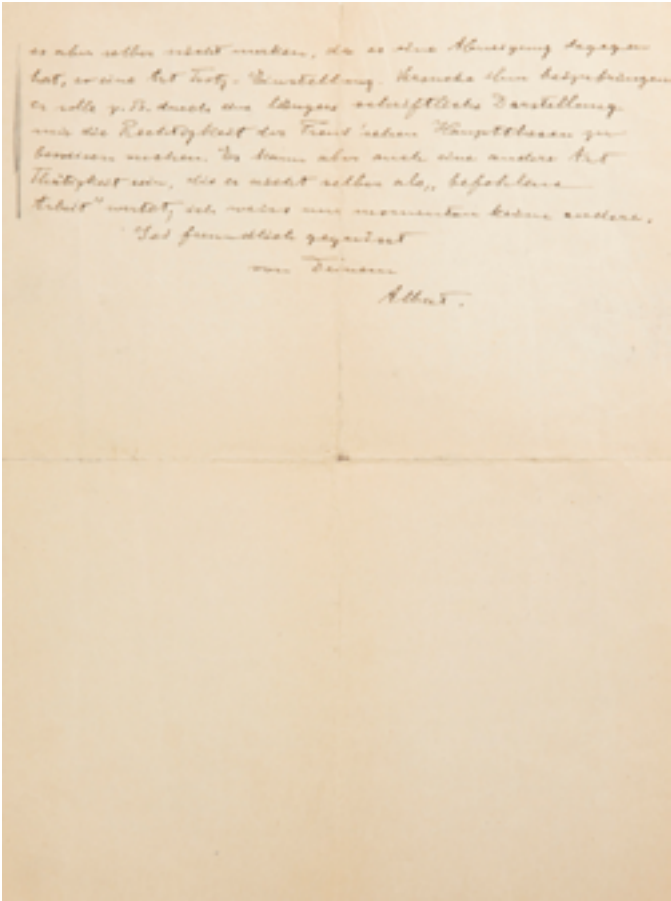 es aber selber nicht merken, da er eine Abneigung dagegen
hat, so eine Art Trotz-Einstellung. Versuche ihm beizubringen
er solle z.B. durch eine längere schriftliche Darstellung
mir die Rechtigkeit der Freud'schen Hauptthesen zu
beweisen suchen. Es kann aber auch eine andere Art
Thätigkeit sein, die er nicht selber als „befohlene
Arbeit" wertet, ich weiss nur momentan keine andere.
Sei freundlich gegrüsst
von Deinem
Albert.